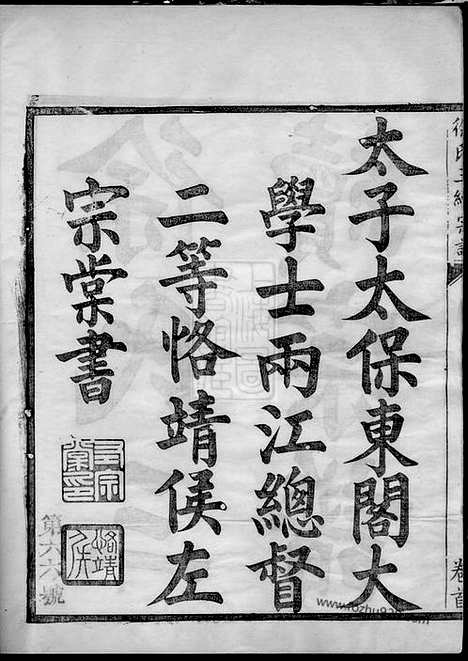 太子太保東閣大
學士兩江總督
二等恪靖侯左
宗棠書
左宗棠印
恪靖侯
第六六號
卷首